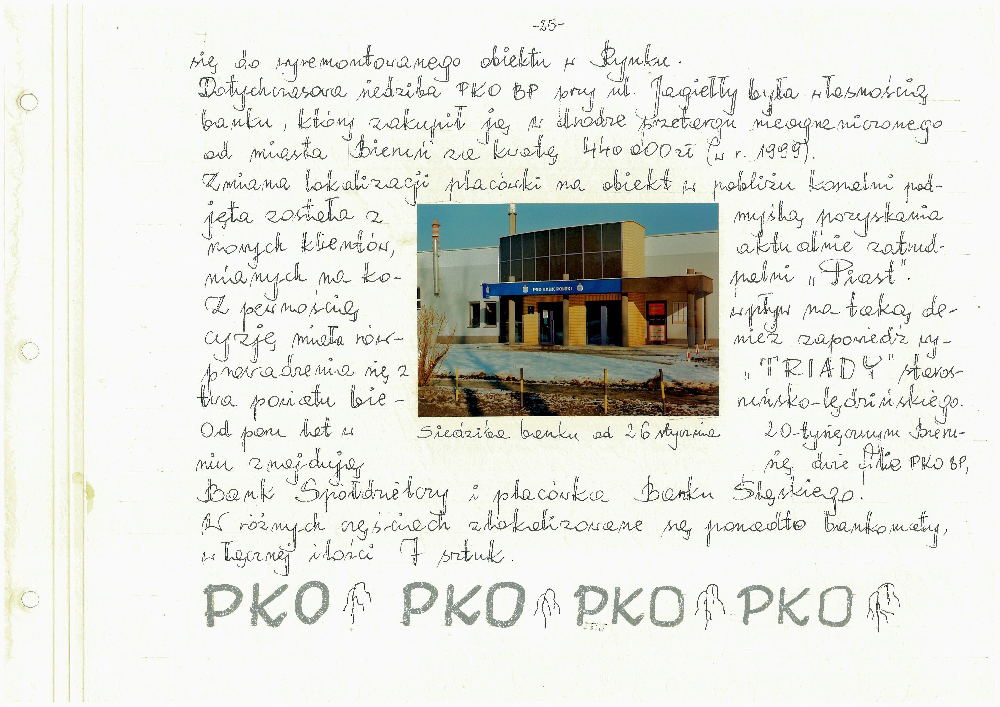 -25-
się do wyremontowanego obiektu w Rynku.
Dotychczasowa siedziba PKO BP przy ul. Jagiełły była własnością
banku, który zakupił ją w drodze przetargu nieograniczonego
od miasta Bieruń za kwotę 440 000 zł (w r. 1999).
Zmiana lokalizacji placówki na obiekt w pobliżu kopalni pod-
jęta została z myślą pozyskania
nowych klientów, aktualnie zatrud-
nianych na ko- palni „Piast".
Z pewnością wpływ na taką de-
cyzję miała rów- nież zapowiedź wy-
prowadzenia się z „TRIADY" staros-
twa powiatu bie- ruńsko-lędzińskiego.
PKO BANK POLSKI
Siedziba banku od 26 stycznia
Od paru lat w 20-tysięcznym Bieru-
niu znajdują się dwie filie PKO BP,
Bank Spółdzielczy i placówka Banku Śląskiego.
W różnych częściach zlokalizowane są ponadto bankomaty,
w łącznej ilości 7 sztuk.
PKO PKO PKO PKO